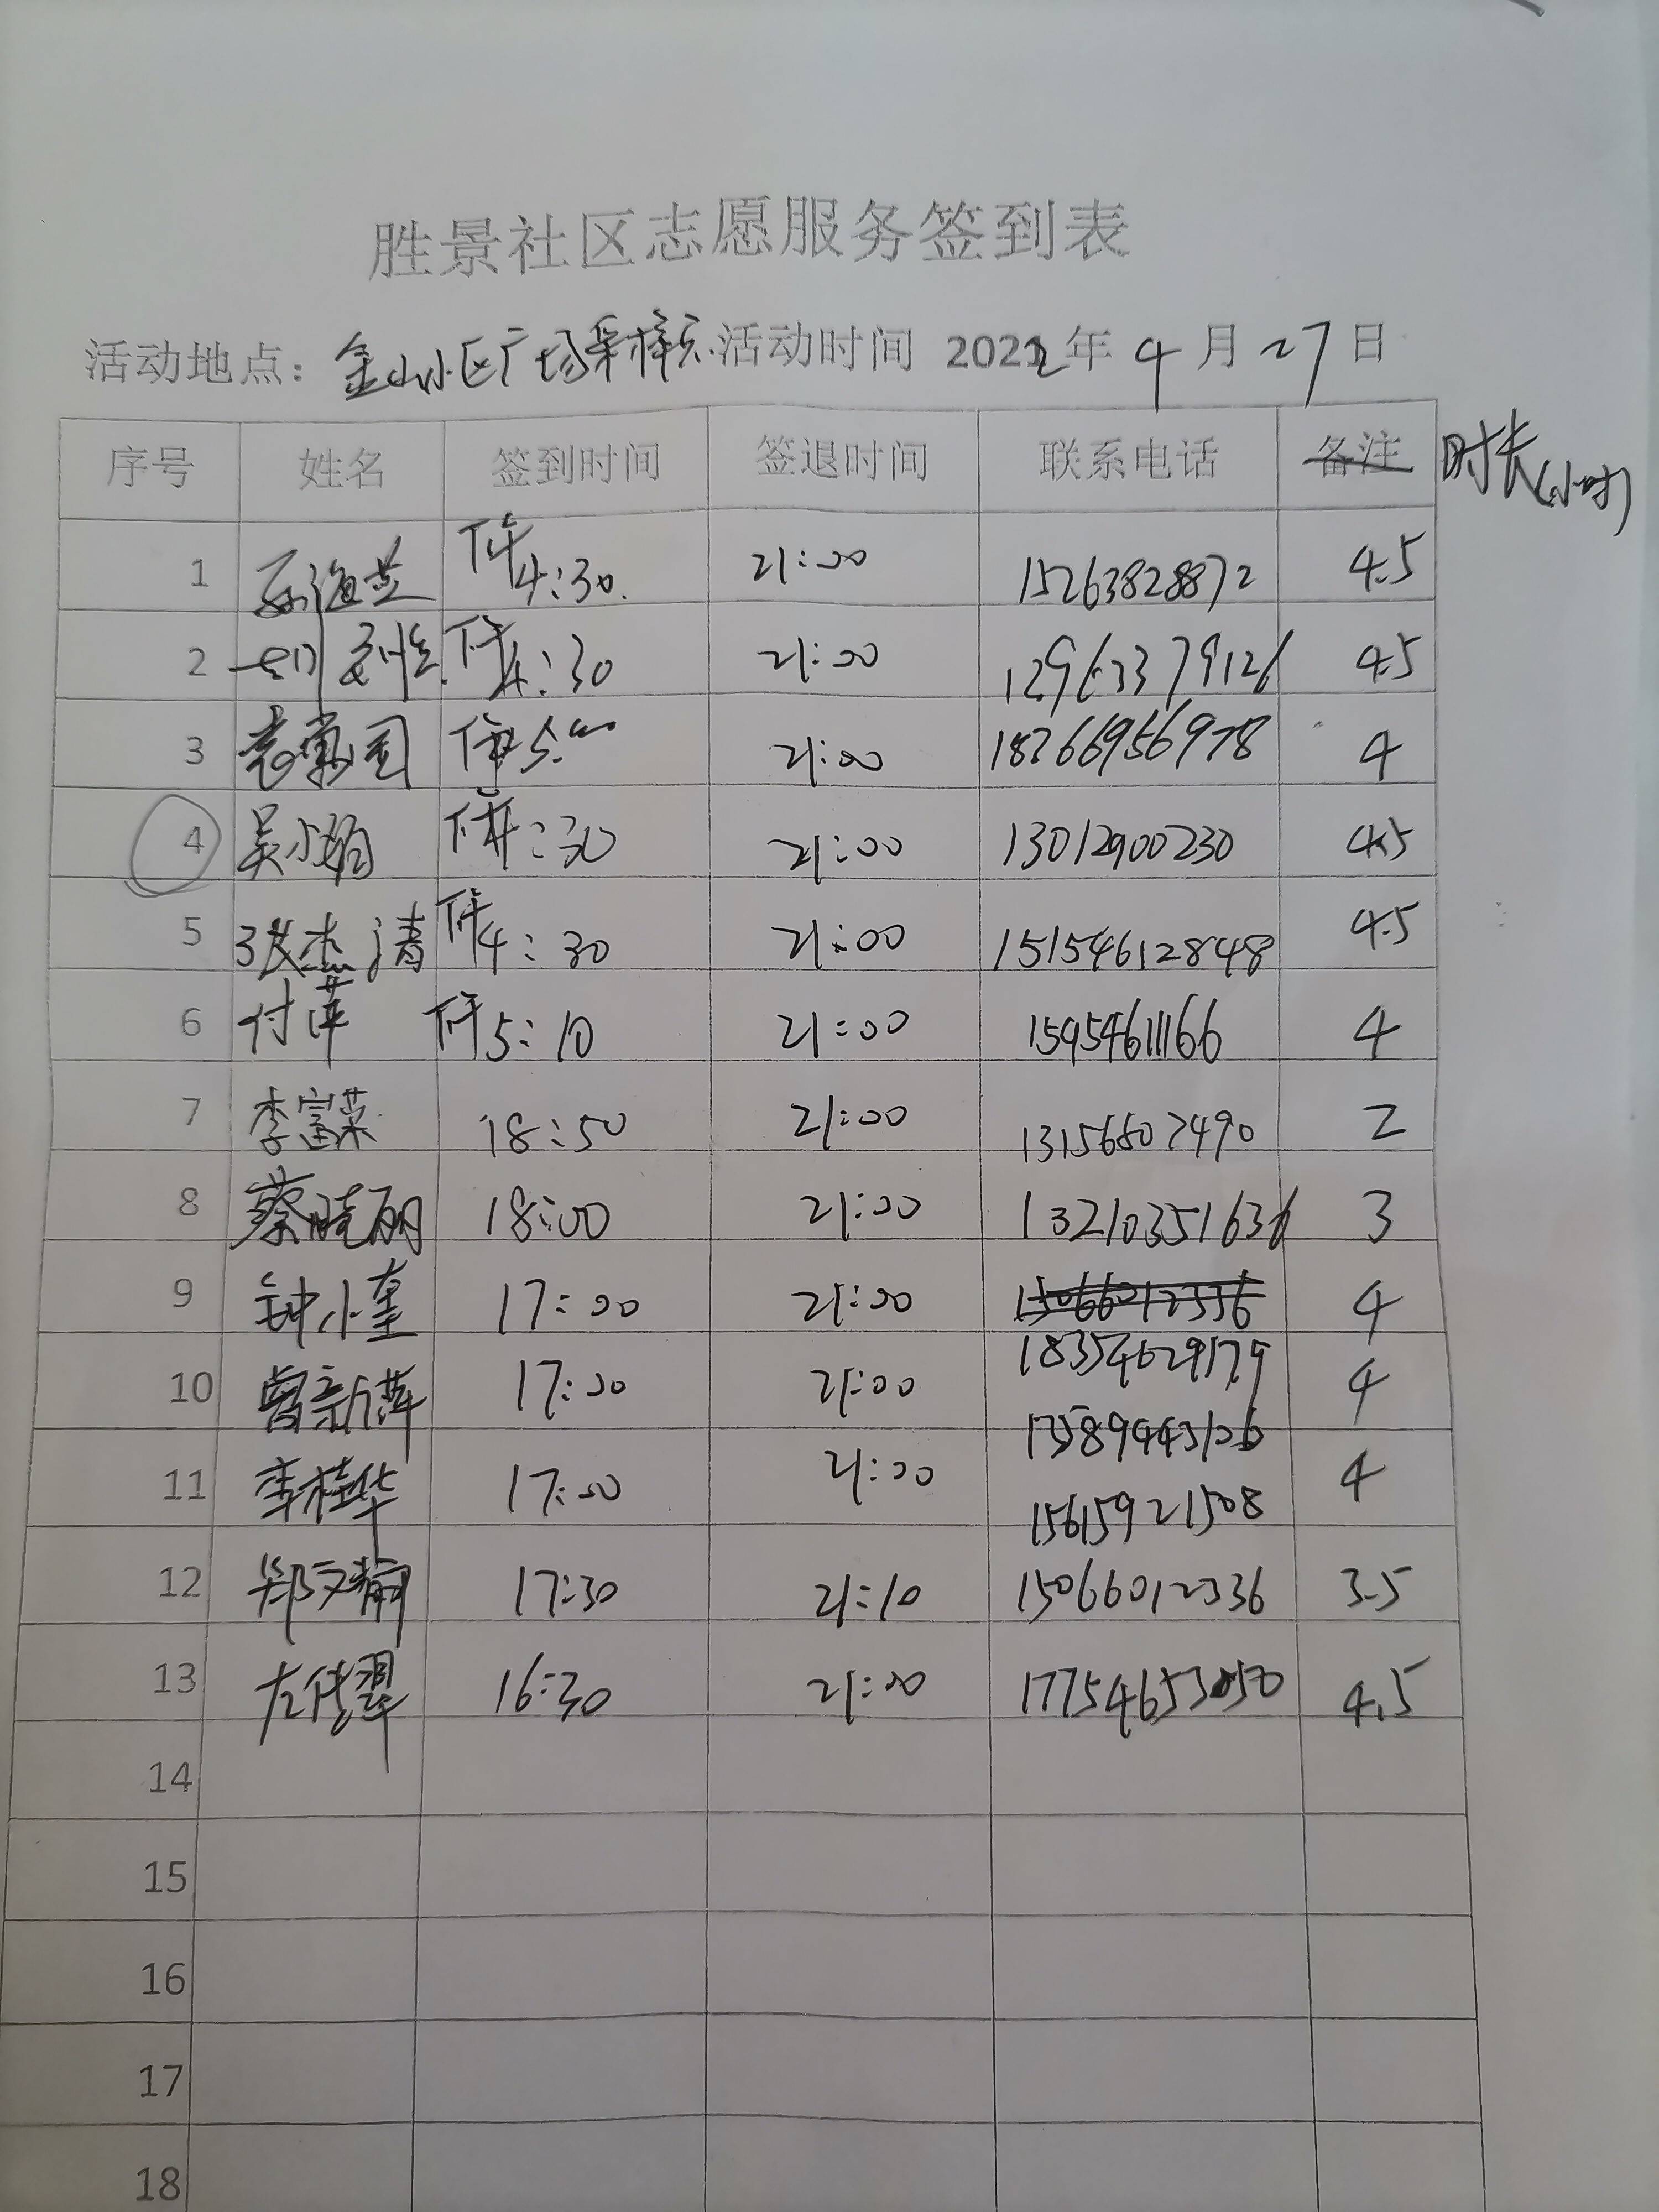 胜景社区志愿服务签到表
活动地点: 金山小区广场采样点 活动时间 2022年4月27日
序号 姓名 签到时间 签退时间 联系电话 备注 时长(小时)
1 孙海燕 下午4:30 21:00 15263828872 4.5
2 下午4:30 21:00 4.5
3 下午5:00 21:00 18266956978 4
4 吴小娟 下午4:30 21:00 13012900230 4.5
5 张杰清 下午4:30 21:00 15154612848 4.5
6 付萍 下午5:10 21:00 15954611166 4
7 李富荣 18:50 21:00 13156607490 2
8 蔡晓丽 18:00 21:00 13210351636 3
9 钟小奎 17:00 21:00 15066012336 4
18354629179
10 曾新萍 17:00 21:00 4
13589443126
11 李桂华 17:00 21:00 4
15615921508
12 郑文静 17:30 21:10 15066012336 3.5
13 左传翠 16:30 21:00 17754653050 4.5
14
15
16
17
18